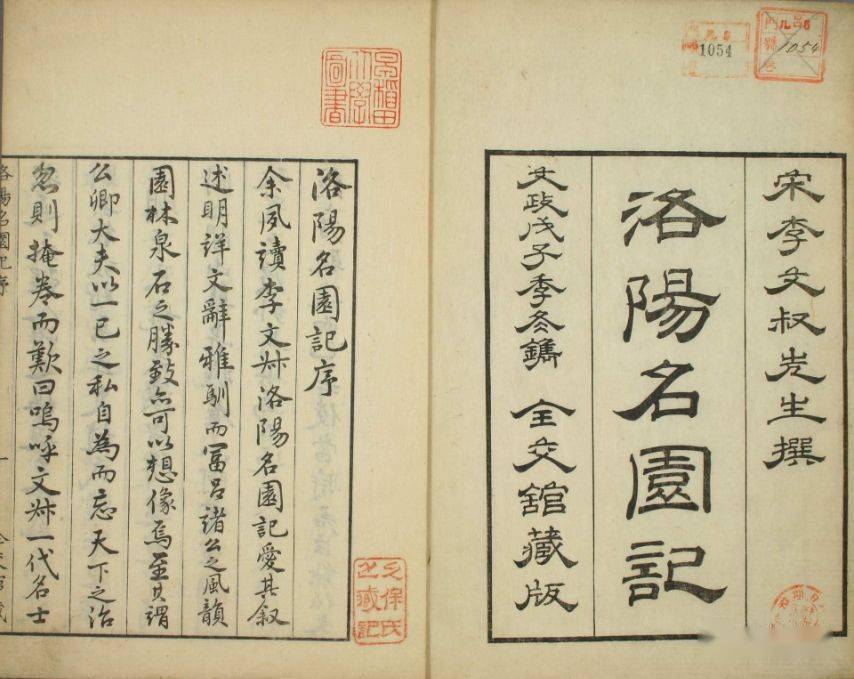 宋李文叔先生撰
洛陽名園記
文政戊子季冬鐫 全交舘藏版
1054
1054
早稲田大學圖書
洛陽名園記序
余夙讀李文叔洛陽名園記愛其叙
述明詳文辭雅馴而冨呂諸公之風韻
園林泉石之勝致亦可以想像焉至其謂
公卿大夫以一己之私自為而忘天下之治
忽則掩卷而歎曰嗚呼文叔一代名士
洛陽名園記序
一